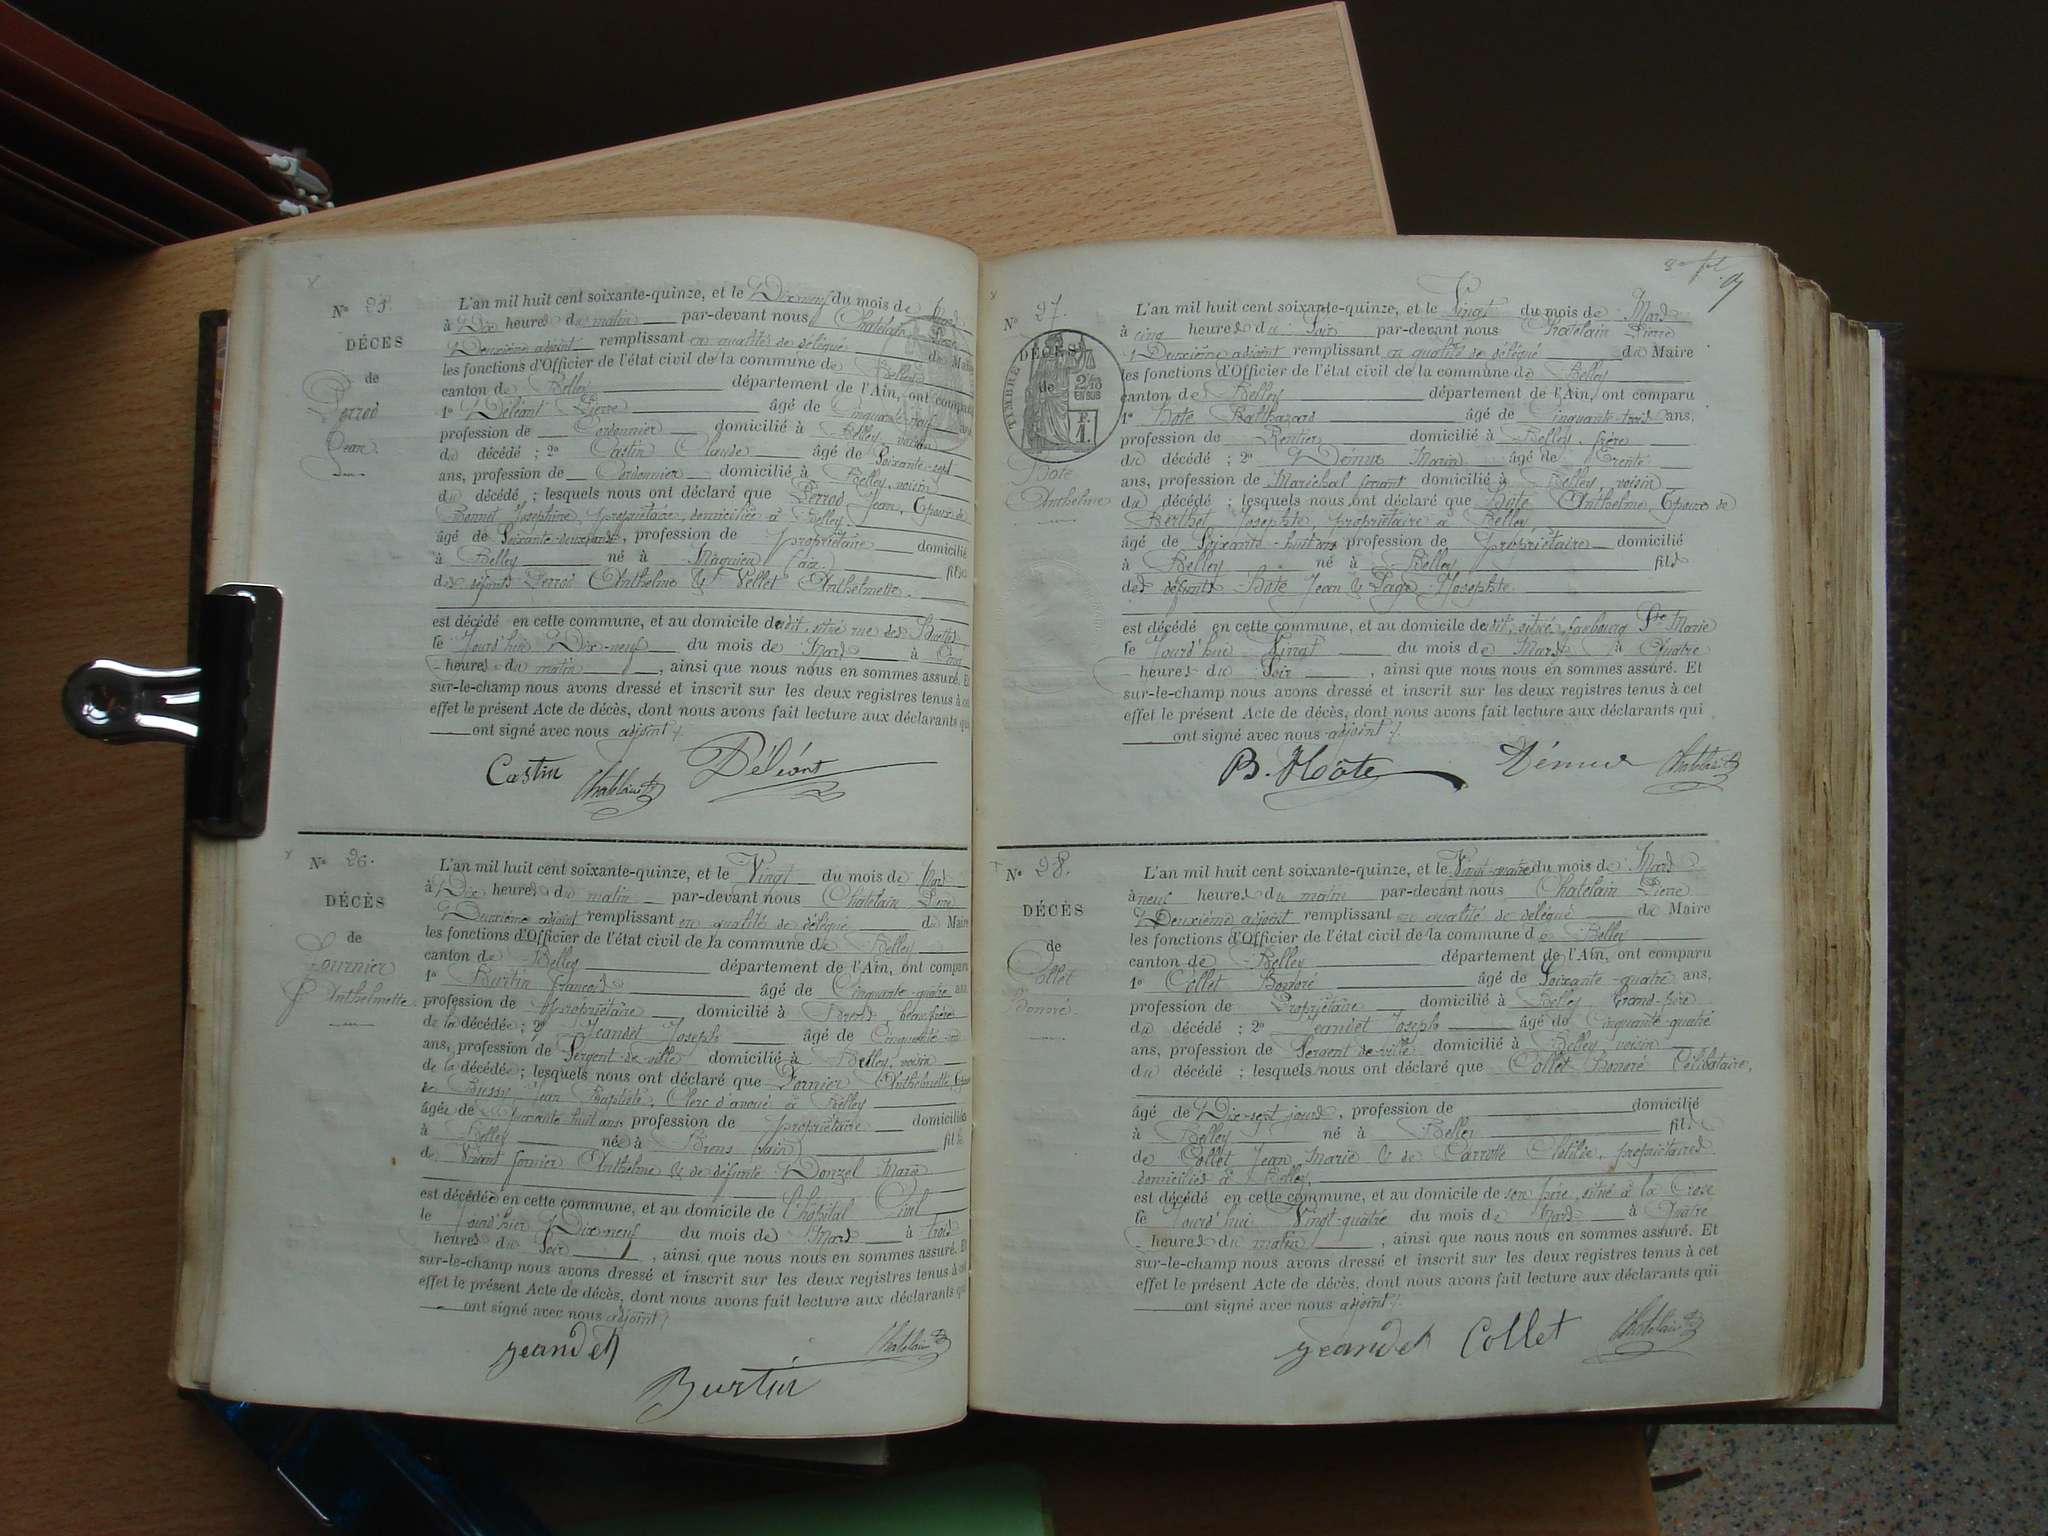 N° 25.
DÉCÈS
de
Perrod
Jean.
L'an mil huit cent soixante-quinze, et le Dix neuf du mois de Mars
à Dix heures du matin par-devant nous Chatelain Pierre
Deuxième adjoint remplissant en qualité de délégué du Maire
les fonctions d'Officier de l'état civil de la commune de Belley
canton de Belley département de l'Ain, ont comparu
1° Déléant Pierre âgé de Cinquante-neuf ans,
profession de Cordonnier domicilié à Belley, voisin
du décédé ; 2° Castin Claude âgé de Soixante-sept
ans, profession de Cordonnier domicilié à Belley, voisin
du décédé ; lesquels nous ont déclaré que Perrod Jean, Epoux de
Bonnet Josephine, propriétaire, domiciliée à Belley
âgé de Soixante-deux ans, profession de propriétaire domicilié
à Belley né à Magnieu (ain) fils
des défunts Perrod Anthelme & Vellet Anthelmette.
est décédé en cette commune, et au domicile de dit, situé rue des
le Jourd'hui Dix-neuf du mois de Mars à Cinq
heures du matin , ainsi que nous nous en sommes assuré. Et
sur-le-champ nous avons dressé et inscrit sur les deux registres tenus à cet
effet le présent Acte de décès, dont nous avons fait lecture aux déclarants qui
ont signé avec nous adjoint.
Castin Chatelain Déléant
N° 26.
DÉCÈS
de
Fornier
Anthelmette.
L'an mil huit cent soixante-quinze, et le Vingt du mois de Mars
à Dix heures du matin par-devant nous Chatelain Pierre
Deuxième adjoint remplissant en qualité de délégué du Maire
les fonctions d'Officier de l'état civil de la commune de Belley
canton de Belley département de l'Ain, ont comparu
1° Burtin françois âgé de Cinquante-quatre ans
profession de propriétaire domicilié à Brens, beau frère
de la décédée ; 2° Jeandet Joseph âgé de Cinquante
ans, profession de Sergent-de-ville domicilié à Belley, voisin
de la décédée ; lesquels nous ont déclaré que Fornier Anthelmette,
de Bussy Jean Baptiste, Clerc d'avoué à Belley
âgée de quarante huit ans, profession de propriétaire domiciliée
à Belley née à Brens (ain) fille
de vivant fornier Anthelme & de défunte Donzel Marie
est décédée en cette commune, et au domicile de l'hôpital Civil
le Jourd'hier Dix-neuf du mois de Mars à trois
heures du Soir , ainsi que nous nous en sommes assuré. Et
sur-le-champ nous avons dressé et inscrit sur les deux registres tenus à cet
effet le présent Acte de décès, dont nous avons fait lecture aux déclarants qui
ont signé avec nous adjoint
Jeandet Chatelain
Burtin
N° 27.
DÉCÈS
de
TIMBRE
2/10
EN SUS
F.
1.
Hote
Anthelme
L'an mil huit cent soixante-quinze, et le Vingt du mois de Mars
à cinq heures du Soir par-devant nous Chatelain Pierre
Deuxième adjoint remplissant en qualité de délégué du Maire
les fonctions d'Officier de l'état civil de la commune de Belley
canton de Belley département de l'Ain, ont comparu
1° Hote Balthazard âgé de Cinquante-trois ans,
profession de Rentier domicilié à Belley, frère
du décédé ; 2° Démur Marin âgé de Trente
ans, profession de Maréchal ferrant domicilié à Belley, voisin
du décédé ; lesquels nous ont déclaré que Hote Anthelme, Epoux de
Berthet Josephte, propriétaire à Belley,
âgé de Soixante-huit ans profession de propriétaire domicilié
à Belley né à Belley fils
des défunts Hote Jean & Page Josephte
est décédé en cette commune, et au domicile de dit, situé, faubourg Ste Marie
le Jourd'hui Vingt du mois de Mars à Quatre
heures du Soir , ainsi que nous nous en sommes assuré. Et
sur-le-champ nous avons dressé et inscrit sur les deux registres tenus à cet
effet le présent Acte de décès, dont nous avons fait lecture aux déclarants qui
ont signé avec nous adjoint.
B. Hôte Démur Chatelain
N° 28.
DÉCÈS
de
Collet
Honoré.
L'an mil huit cent soixante-quinze, et le Vingt-quatre du mois de Mars
à neuf heures du matin par-devant nous Chatelain Pierre
Deuxième adjoint remplissant en qualité de délégué du Maire
les fonctions d'Officier de l'état civil de la commune de Belley
canton de Belley département de l'Ain, ont comparu
1° Collet Honoré âgé de Soixante-quatre ans,
profession de Propriétaire domicilié à Belley, Grand-père
du décédé ; 2° Jeandet Joseph âgé de Cinquante-quatre
ans, profession de Sergent de ville domicilié à Belley voisin
du décédé ; lesquels nous ont déclaré que Collet Honoré Célibataire,
âgé de Dix-sept jours, profession de domicilié
à Belley né à Belley fils
de Collet Jean Marie & de Carrotte Clotilde, propriétaires
domiciliés à Belley,
est décédé en cette commune, et au domicile de son père, situé à la Crose
le Jourd'hui Vingt-quatre du mois de Mars à Quatre
heures du matin , ainsi que nous nous en sommes assuré. Et
sur-le-champ nous avons dressé et inscrit sur les deux registres tenus à cet
effet le présent Acte de décès, dont nous avons fait lecture aux déclarants qui
ont signé avec nous adjoint.
Jeandet Collet Chatelain